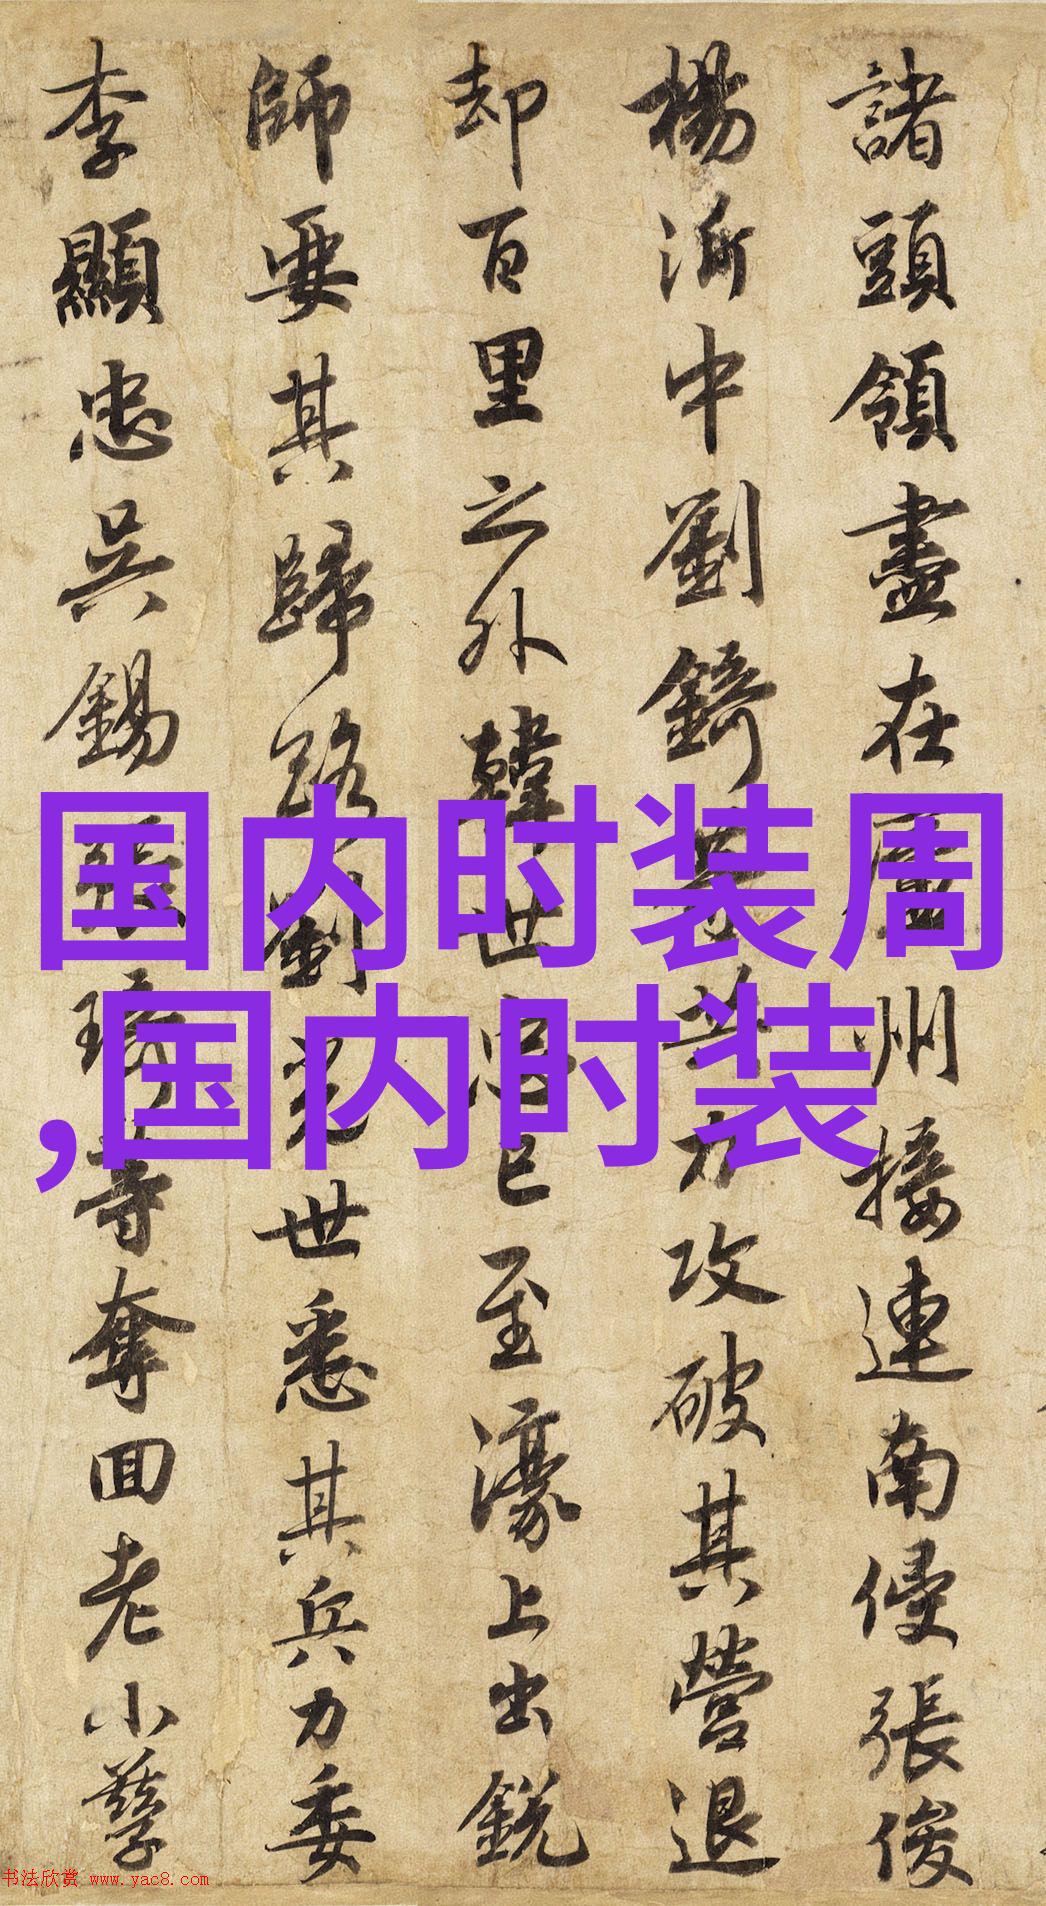 諸頭領盡在廬州接連南侵張俊
楊沂中劉錡等共力攻破其營退
却百里之外韓世忠已至濠上出銳
師要其歸路劉光世悉其兵力委
李顯忠吳錫張琦等奪回老小孳
国内时装周
,国内时装
书法欣赏 www.yac8.com